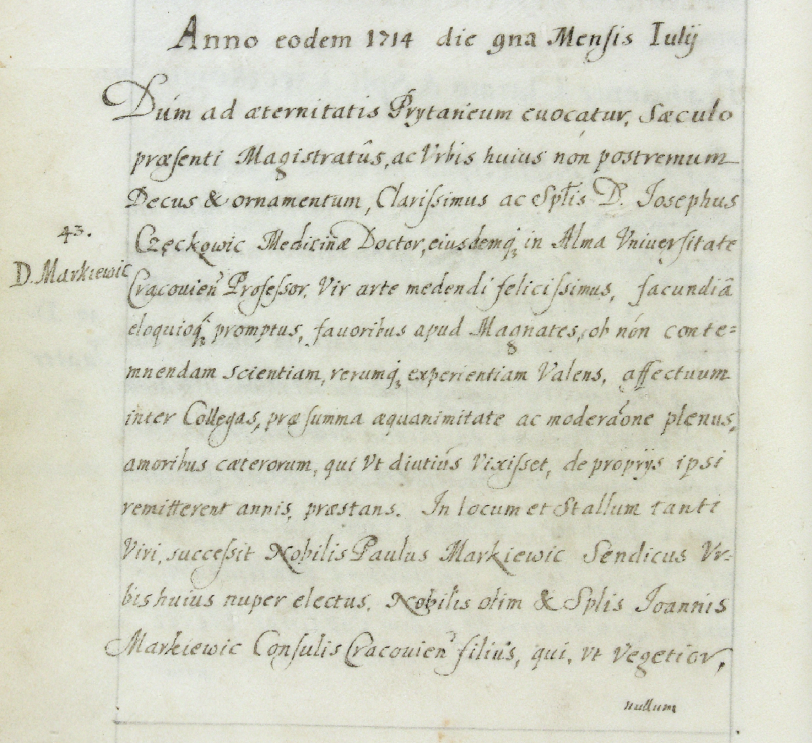 Anno eodem 1714 die 9na Mensis Iulij
Dum ad æternitatis Prytaneum euocatur, Sæculo
præsenti Magistratûs, ac Vrbis huius nòn postremum
Decus & ornamentum, Clarissimus ac Splis D. Josephus
43.
Częckowic Medicinæ Doctor, eiusdemq; in Alma Vniuersitate
D. Markiewic
Cracouien Professor. Vir arte medendi felicissimus, facundiâ
eloquioq; promptus, fauoribus apud Magnates, ob nón conte=
mnendam scientiam, rerumq; experientiam Valens, affectuum
inter Collegas, præ summa æquanimitate ac moderaone plenus,
amoribus cæterorum, qui Vt diutiùs Vixisset, de proprijs ipsi
remitterent annis, præstans. In locum et Stallum tanti
Viri, successit Nobilis Paulus Markiewic Sendicus Vr=
bis huius nuper electus. Nobilis olim & Splis Joannis
Markiewic Consulis Cracouien filius, qui, vt Vegetior,
nullum